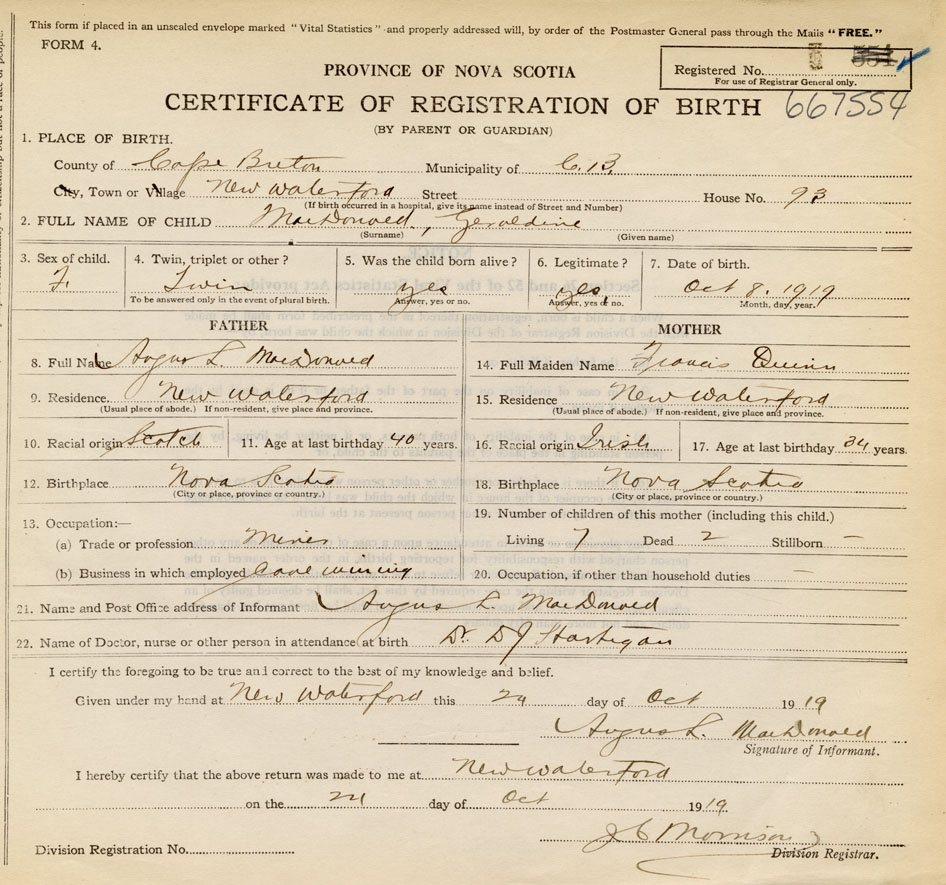 This form if placed in an unsealed envelope marked "Vital Statistics" and properly addressed will, by order of the Postmaster General pass through the Mails "FREE."
FORM 4.
Registered No. 554
For use of Registrar General only.
PROVINCE OF NOVA SCOTIA
CERTIFICATE OF REGISTRATION OF BIRTH 667554
(BY PARENT OR GUARDIAN)
1. PLACE OF BIRTH.
County of Cape Breton Municipality of C.B.
City, Town or Village New Waterford Street House No. 93
(If birth occurred in a hospital, give its name instead of Street and Number)
2. FULL NAME OF CHILD MacDonald, Geraldine
(Surname) (Given name)
3. Sex of child. 4. Twin, triplet or other? 5. Was the child born alive? 6. Legitimate? 7. Date of birth.
F. Twin yes yes Oct 8. 1919
To be answered only in the event of plural birth. Answer, yes or no. Answer, yes or no. Month, day, year.
FATHER MOTHER
8. Full Name Angus L. MacDonald 14. Full Maiden Name Francis Quinn
9. Residence. New Waterford 15. Residence New Waterford
(Usual place of abode.) If non-resident, give place and province. (Usual place of abode.) If non-resident, give place and province.
10. Racial origin Scotch 11. Age at last birthday 40 years. 16. Racial origin Irish 17. Age at last birthday 34 years.
12. Birthplace Nova Scotia 18. Birthplace Nova Scotia
(City or place, province or country.) (City or place, province or country.)
13. Occupation:— 19. Number of children of this mother (including this child.)
(a) Trade or profession Miner Living 7 Dead 2 Stillborn –
(b) Business in which employed mining 20. Occupation, if other than household duties –
21. Name and Post Office address of Informant Angus L. MacDonald
22. Name of Doctor, nurse or other person in attendance at birth Dr. D J Hartigan
I certify the foregoing to be true and correct to the best of my knowledge and belief.
Given under my hand at New Waterford this day of Oct 1919
Angus L. MacDonald
Signature of Informant.
I hereby certify that the above return was made to me at New Waterford
on the day of Oct 1919.
J C Morrison
Division Registration No. Division Registrar.